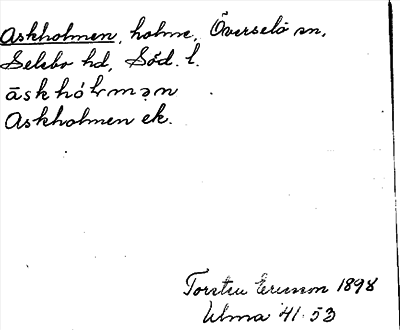 Askholmen, holme, Överselö sn,
Selebo hd, Söd. l.
āskhólmən
Askholmen ek.
Torsten Ericsson 1898
Ulma 41.53